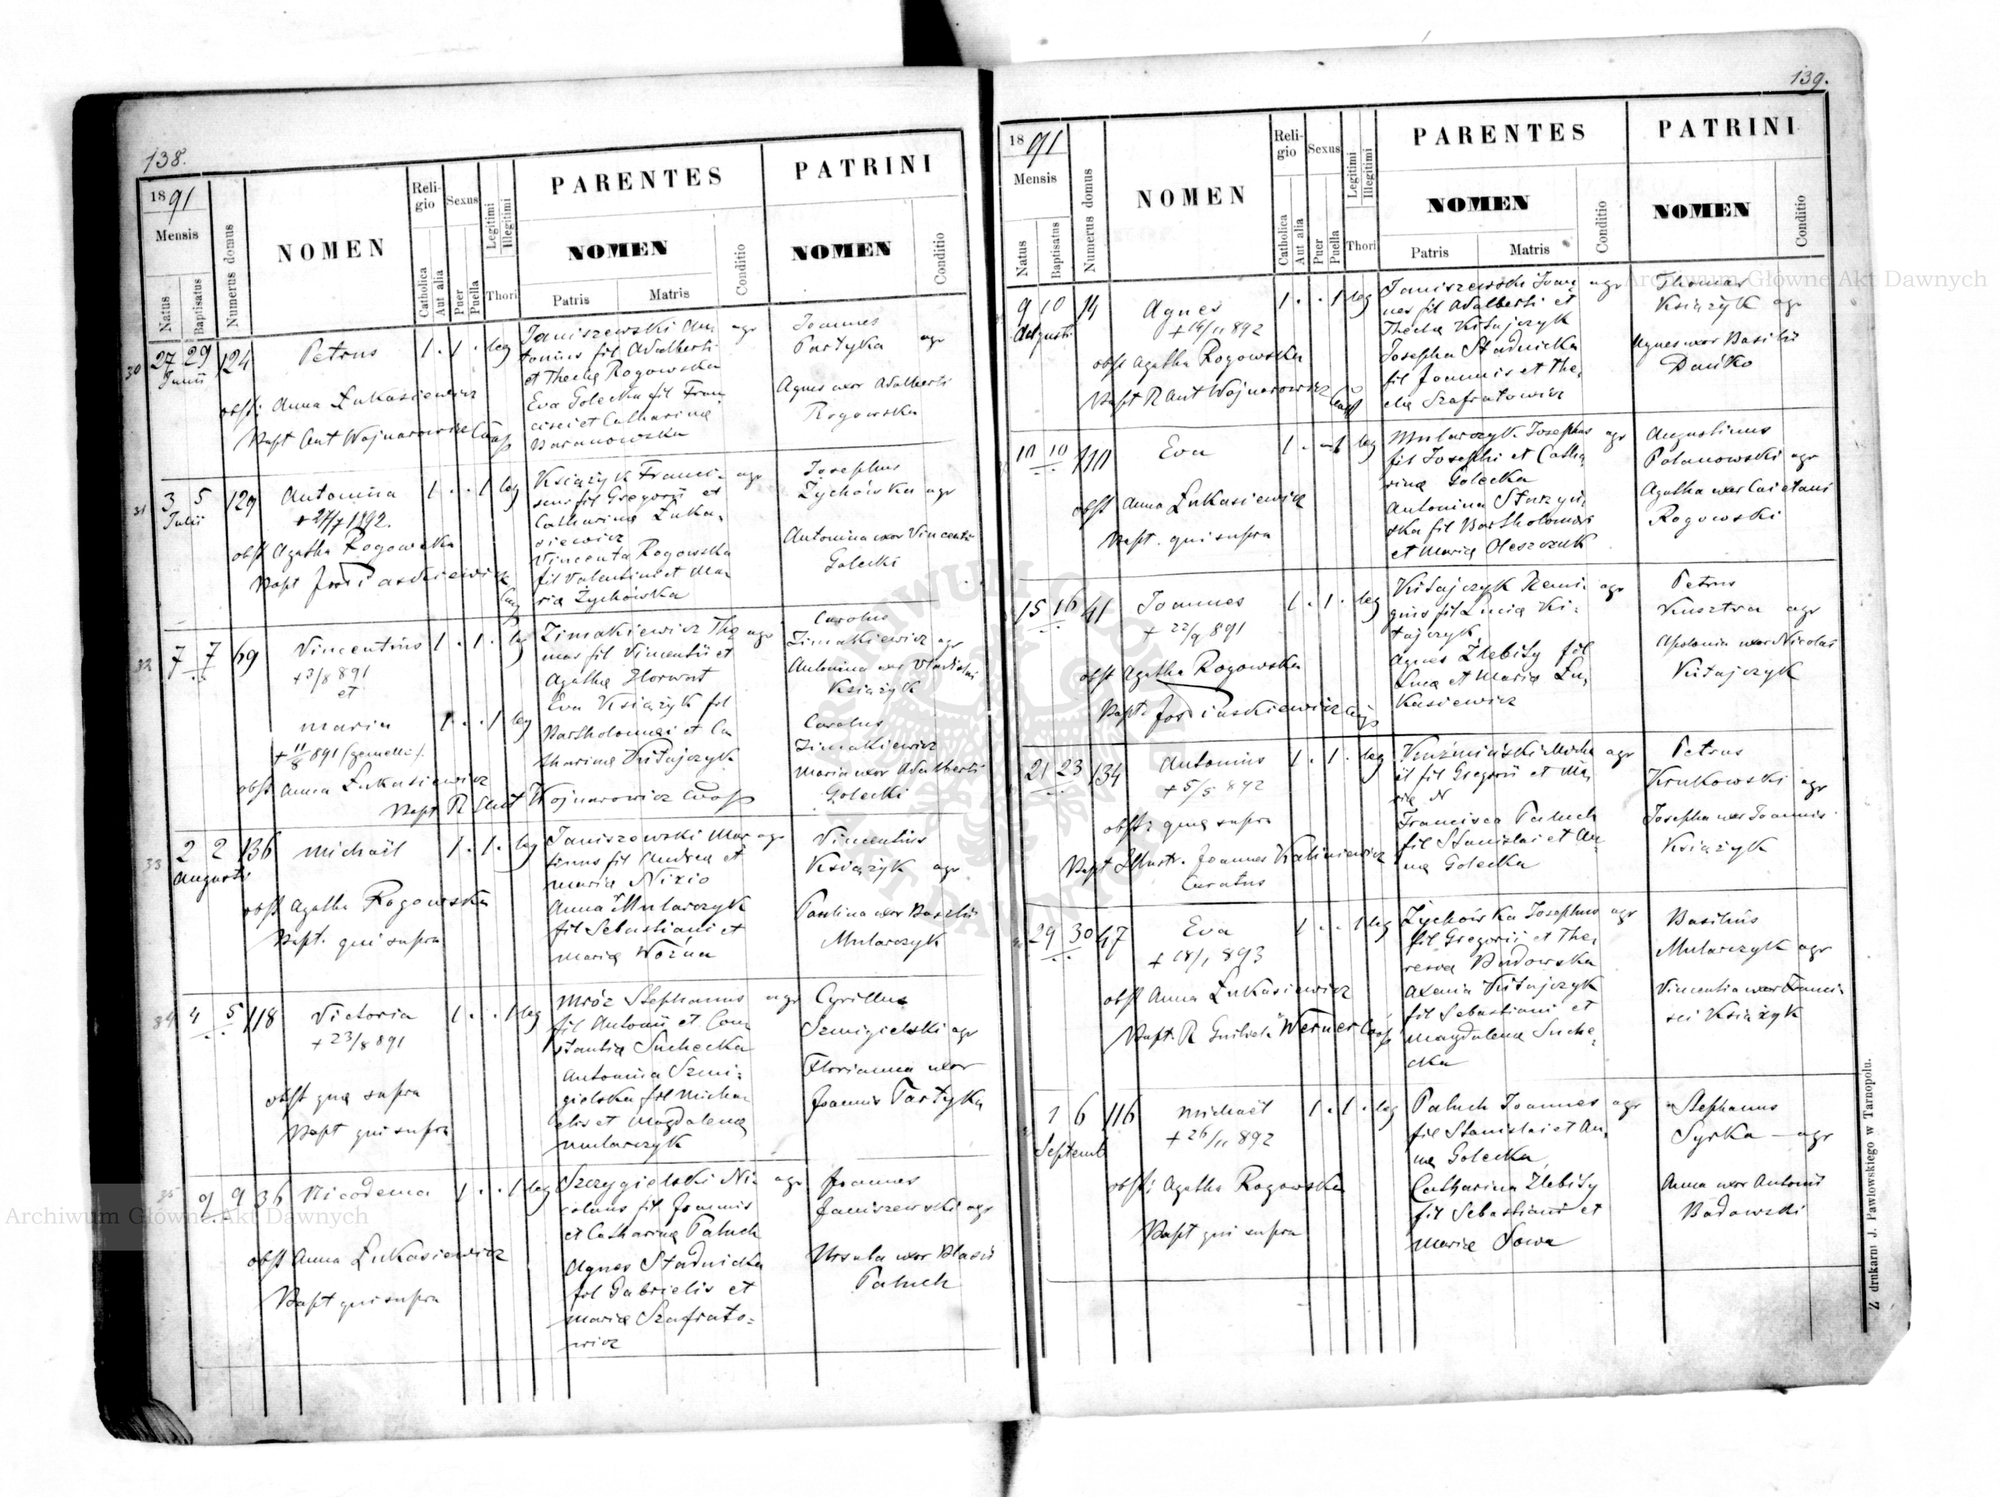 138.
1891
Mensis
Natus
Baptisatus
Numerus domus
NOMEN
Religio
Catholica
Aut alia
Sexus
Puer
Puella
Legitimi
Illegitimi
Thori
PARENTES
NOMEN
Patris
Matris
Conditio
PATRINI
NOMEN
Conditio
30 27 29 124 Petrus 1 . 1 . leg
Junii
obst: Anna Łukasiewicz
Bapt Ant Wojnarowicz Coop
Janiszewski An- agr
tonius fil Adalberti
et Thecla Rogowska
Eva Golecka fil Fran
cisci et Catharina
Baranowska
Joannes
Partyka agr
Agnes uxor Adalberti
Rogowska
31 3 5 129 Antonina 1 . . 1 leg
Julii
+ 24/7 1892.
obst Agatha Rogowska
Bapt Jos Paszkiewicz
Książyk Franci- agr
scus fil Gregorii et
Catharina Łuka-
siewicz
Vincenta Rogowska
fil Valentini et Ma-
ria Zychówska
Josephus
Zychówka agr
Antonina uxor Vincenti
Golecki
32 7 7 69 Vincentius 1 . 1 . leg
+ 3/8 891
et
Maria 1 . . 1 leg
+ 11/8 891 (gemelli).
obst Anna Łukasiewicz
Bapt R Ant Wojnarowicz Coop
Zimakiewicz Tho agr
mas fil Vincentii et
Agatha Horwat
Eva Książyk fil
Bartholomaei et Ca
tharina Kitajczyk
Carolus
Zimakiewicz agr
Antonina uxor Vladislai
Książyk
Carolus
Zimakiewicz
Maria uxor Adalberti
Golecki
33 2 2 136 Michaël 1 . 1 . leg
Augusti
obst Agatha Rogowska
Bapt. qui supra
Janiszewski Mar agr
tinus fil Andrea et
Maria Nizio
Anna Mularczyk
fil Sebastiani et
Maria Woźna
Vincentius
Książyk agr
Paulina uxor Basilii
Mularczyk
34 4 5 118 Victoria 1 . . 1 leg
+ 23/8 891
obst qua supra
Bapt qui supra
Mróz Stephanus agr
fil Antonii et Con
stantia Suchecka
Antonina Szmi-
gielska fil Micha
elis et Magdalena
Mularczyk
Cyrillus
Szmigielski agr
Florianna uxor
Joannis Partyka
35 9 9 36 Nicodema 1 . . 1 leg
obst Anna Łukasiewicz
Bapt qui supra
Szczygielski Ni- agr
colaus fil Joannis
et Catharina Paluch
Agnes Stadnicka
fil Gabrielis et
Maria Szafrato-
wicz
Joannes
Janiszewski agr
Ursula uxor Blasii
Paluch
139.
1891
Mensis
Natus
Baptisatus
Numerus domus
NOMEN
Religio
Catholica
Aut alia
Sexus
Puer
Puella
Legitimi
Illegitimi
Thori
PARENTES
NOMEN
Patris
Matris
Conditio
PATRINI
NOMEN
Conditio
9 10 14 Agnes 1 . . 1 leg
Augusti
+ 14/11 892
obst Agatha Rogowska
Bapt R Ant Wojnarowicz Coop
Janiszewski Joan- agr
nes fil Adalberti et
Thecla Kitajczyk
Josepha Stadnicka
fil Joannis et The-
cla Szafratowicz
Thomas
Książyk agr
Agnes uxor Basilii
Dańko
10 10 110 Eva 1 . . 1 leg
obst Anna Łukasiewicz
Bapt. qui supra
Mularczyk Josephus agr
fil Josephi et Catha
rina Golecka
Antonina Starzyń
ska fil Bartholomaei
et Maria Oleszczuk
Augustinus
Polanowski agr
Agatha uxor Caietani
Rogowski
15 16 41 Joannes 1 . 1 . leg
+ 22/9 891
obst Agatha Rogowska
Bapt. Jos Paszkiewicz Coop
Kitajczyk Remi- agr
gius fil Lucia Ki-
tajczyk
Agnes Zlebity fil
Luca et Maria Łu
kasiewicz
Petrus
Kusztra agr
Apolonia uxor Nicolai
Kitajczyk
21 23 134 Antonius 1 . 1 . leg
+ 5/5 892
obst: qua supra
Bapt Illustr. Joannes Kaliniewicz
Curatus
Kuźmiński Micha agr
el fil Gregorii et Ma
ria N
Francisca Paluch
fil Stanislai et An
na Golecka
Petrus
Krukowski agr
Josepha uxor Joannis
Książyk
29 30 47 Eva 1 . . 1 leg
+ 18/1 893
obst Anna Łukasiewicz
Bapt. R Guilielm Werner Coop
Zychówka Josephus agr
fil Gregorii et The-
resia Badowska
Axenia Kitajczyk
fil Sebastiani et
Magdalena Suche-
cka
Basilius
Mularczyk agr
Vincentia uxor Franci-
sci Książyk
1 6 116 Michaël 1 . 1 . leg
Septemb
+ 26/11 892
obst: Agatha Rogowska
Bapt qui supra
Paluch Joannes agr
fil Stanislai et An-
na Golecka
Catharina Zlebity
fil Sebastiani et
Maria Sowa
Stephanus
Syrka — agr
Anna uxor Antonii
Badowski
Z drukarni J. Pawłowskiego w Tarnopolu.
Archiwum Główne Akt Dawnych
Archiwum Główne Akt Dawnych
ARCHIWUM GŁÓWNE AKT DAWNYCH